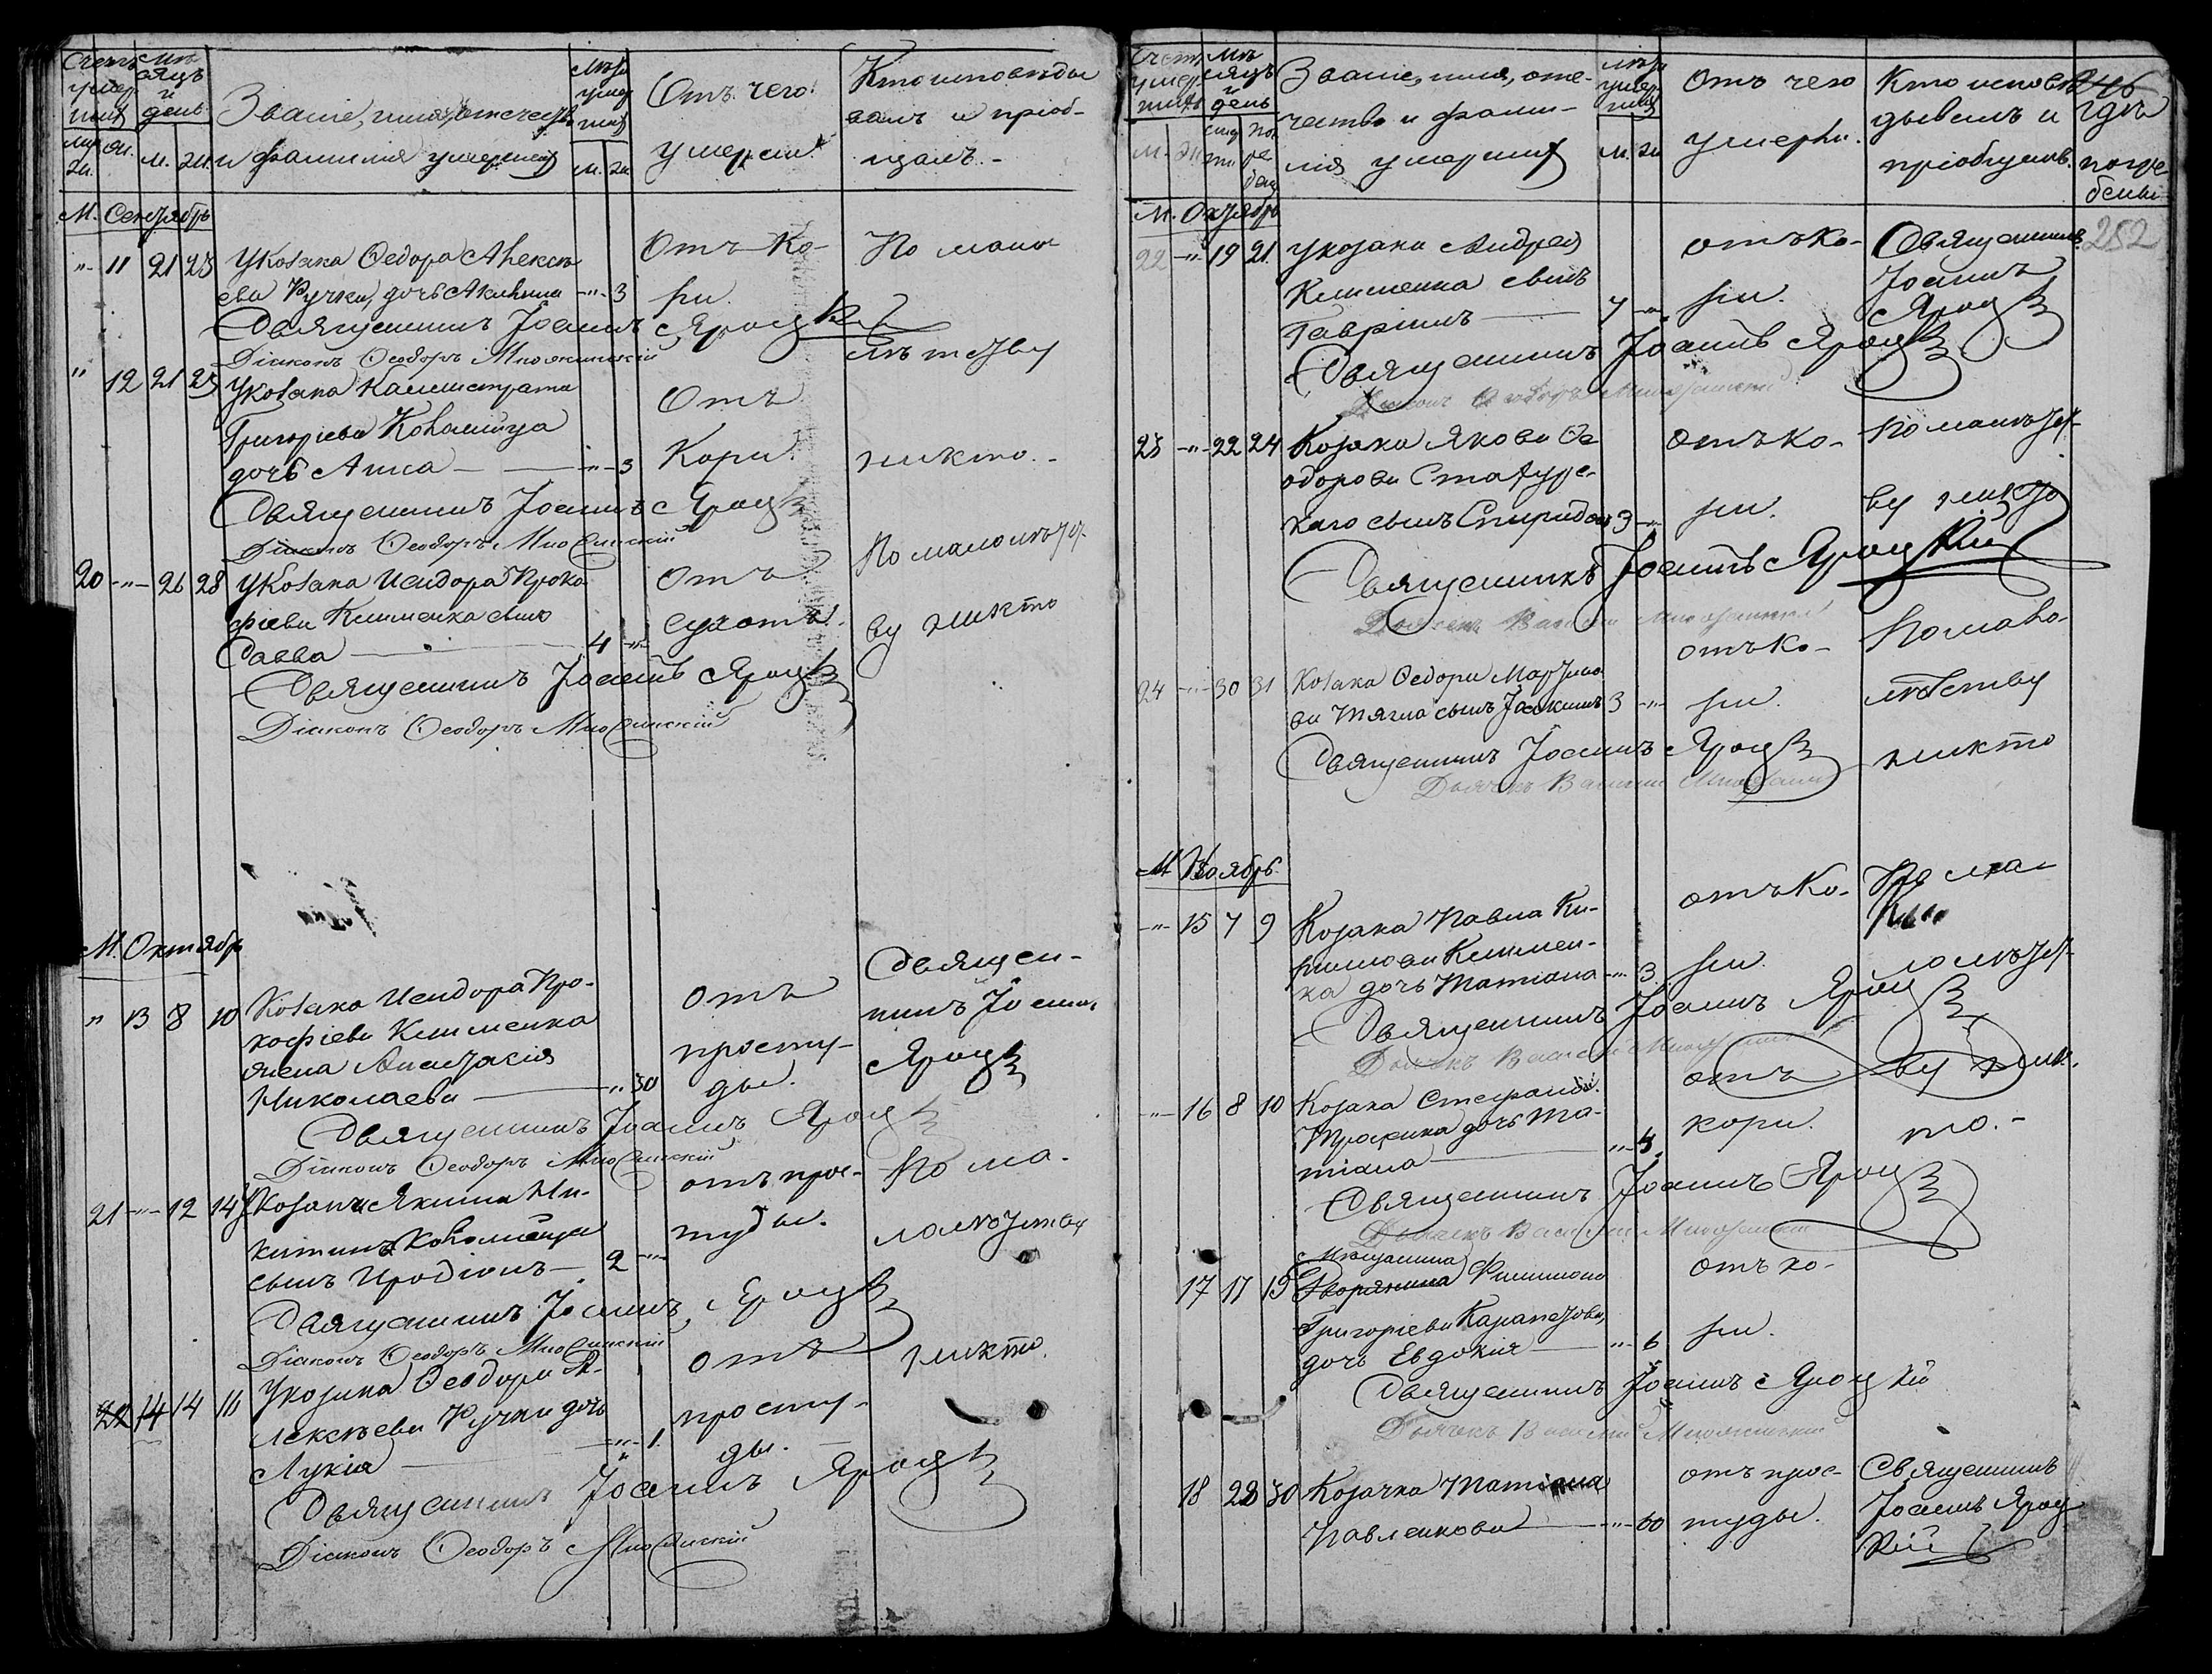 Счетъ умер- шихъ
Мѣ- сяцъ и день
Званіе, имя, отечество
и фамилія умершихъ
Лѣта умер шихъ
Отъ чего
умерли.
Кто исповѣды
валъ и пріоб-
щалъ.-
М. Сентябрь
"- 11 21 23 У козака Федора Алексѣ
ева Ручки, дочь Акилина -"- 3
Отъ ко-
ри.
По мало
Священникъ Іоаннъ Яроцкій
лѣтству
Діаконъ Феодоръ
" 12 21 23 У козака Каллистрата
Григорьева Коломійца
дочь Анна -"- 3
Отъ
Кори.
никто.-
Священникъ Іоаннъ Яроц
Діаконъ Феодоръ
20 -"- 26 28 У козака Исидора Проко
фіева Клименка сынъ
Савва 4 -"-
отъ
сухоты.
По малолѣтст-
ву никто
Священникъ Іоаннъ Яроц
Діаконъ Феодоръ
М. Октябрь
" 13 8 10 Козака Исидора Про-
кофіева Клименка
жена Анастасія
Николаева -"- 30
отъ
просту-
ды.
Священ-
никъ Іоаннъ
Яроц
Священникъ Іоаннъ Яроц
Діаконъ Феодоръ
21 -"- 12 14 У козака Якима Ни-
китина Коломійца
сынъ Иродіонъ 2 -"-
отъ прос-
туды.
По ма-
лолѣтству
Священникъ Іоаннъ Яроц
Діаконъ Феодоръ
никто.
14 14 16 У козака Феодора А-
лексѣева Ручки дочь
Лукія -"- 1.
отъ
просту-
ды.
Священникъ Іоаннъ Яроц
Діаконъ Феодоръ
Счетъ умер- шихъ
Мѣ сяцъ и день
Званіе, имя, оте-
чество и фами-
лія умершихъ
Лѣта умер- шихъ
Отъ чего
умерли.
Кто исповѣ-
дывалъ и
пріобщалъ.
246
гдѣ
погре
бены
252
М. Октябрь
22 -"- 19 21. У козака Андрея
Клименка сынъ
Гавріилъ 7 -"-
отъ ко-
ри.
Священникъ
Іоаннъ
Яроц
Священникъ Іоаннъ Яроц
23 -"- 22 24 Козака Якова Фе
одорова
каго сынъ Спиридонъ 3 -"-
отъ ко-
ри.
По малолѣтст-
ву никто
Священникъ Іоаннъ Яроцкій
Дьячокъ Василій
24 -"- 30 31 Козака Федора Марты-
ва Тягла сынъ Іоакимъ 3 -"-
отъ ко-
ри.
По мало-
лѣтству
никто
Священникъ Іоаннъ Яроц
Дьячокъ Василій
М. Ноябрь
-"- 15 7 9 Козака Павла Ки-
риллова Климен-
ка дочь Татіана -"- 3
отъ ко-
ри.
По ма-
лолѣтст-
Священникъ Іоаннъ Яроц
Дьячокъ Василій
ву ник-
то.-
-"- 16 8 10 Козака Стефана
дочь Та-
тіана -"-
отъ
кори.
Священникъ Іоаннъ Яроц
Дьячокъ Василій
Мѣщанина
17 17 19 Дворянина Филимона
Григорьева
дочь Евдокія -"- 6
отъ ко-
ри.
Священникъ Іоаннъ Яроцкій
Дьячокъ Василій
18 28 30 Козачка Татіана
Павленкова -"- 60
отъ прос-
туды.
Священникъ
Іоаннъ Яроц
кій